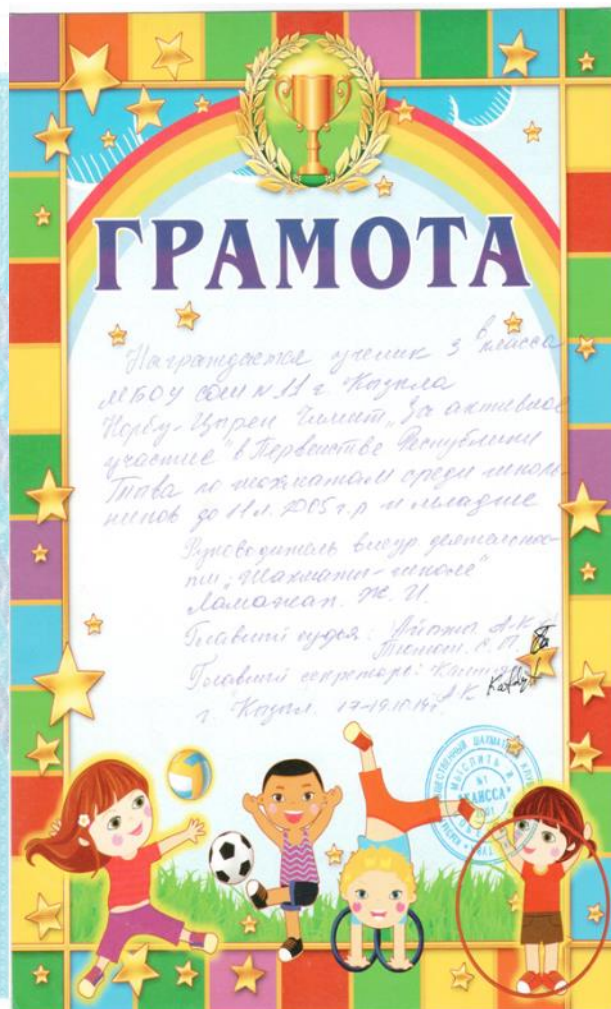 ГРАМОТА
Награждается ученик 3 в класса
МБОУ СОШ № 11 г. Кызыла
Норбу-Цырен Чимит „За активное
участие" в Первенстве Республики
Тыва по шахматам среди школь-
ников до 11 л. 2005 г.р и младше
Руководитель внеур. деятельнос-
ти „Шахматы - школе"
Ламажап. Ж. И.
Главный судья: А.К
Главный секретарь:
А К
г. Кызыл. 17-19.10.14г.
ШАХМАТНЫЙ КЛУБ
МЫСЛИТЬ И
№1
"КАИССА"